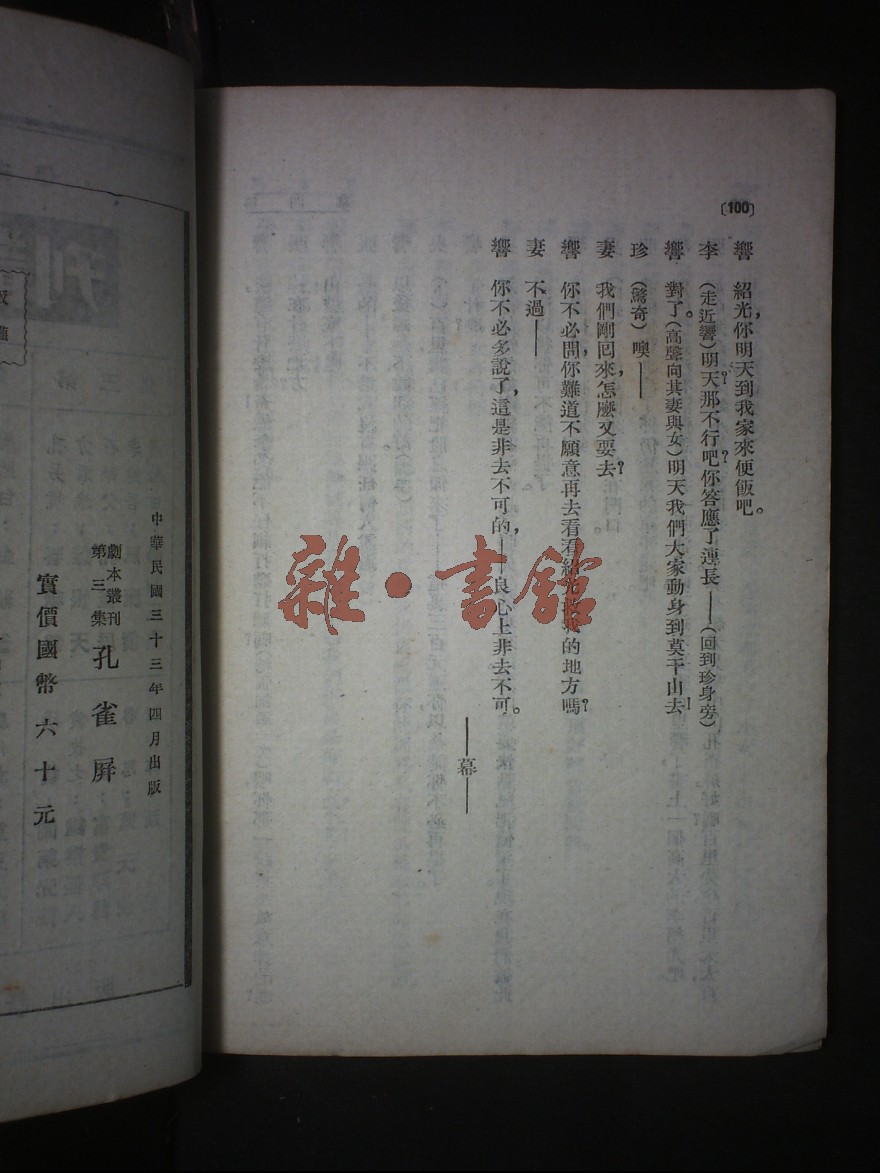 〔100〕
響　紹光，你明天到我家來便飯吧。
李　（走近響）明天那不行吧？你答應了連長？——（回到珍身旁）
響　對了。（高聲向其妻與女）明天我們大家動身到莫干山去！
珍　（驚奇）噢——
妻　我們剛回來，怎麼又要去？
響　你不必問，你難道不願意再去看看紹光救我的地方嗎？
妻　不過——
響　你不必多說了，這是非去不可的，——良心上非去不可。
——幕——
雜·書館
中華民國三十三年四月出版
劇本叢刊
第三集
孔雀屏
實價國幣六十元